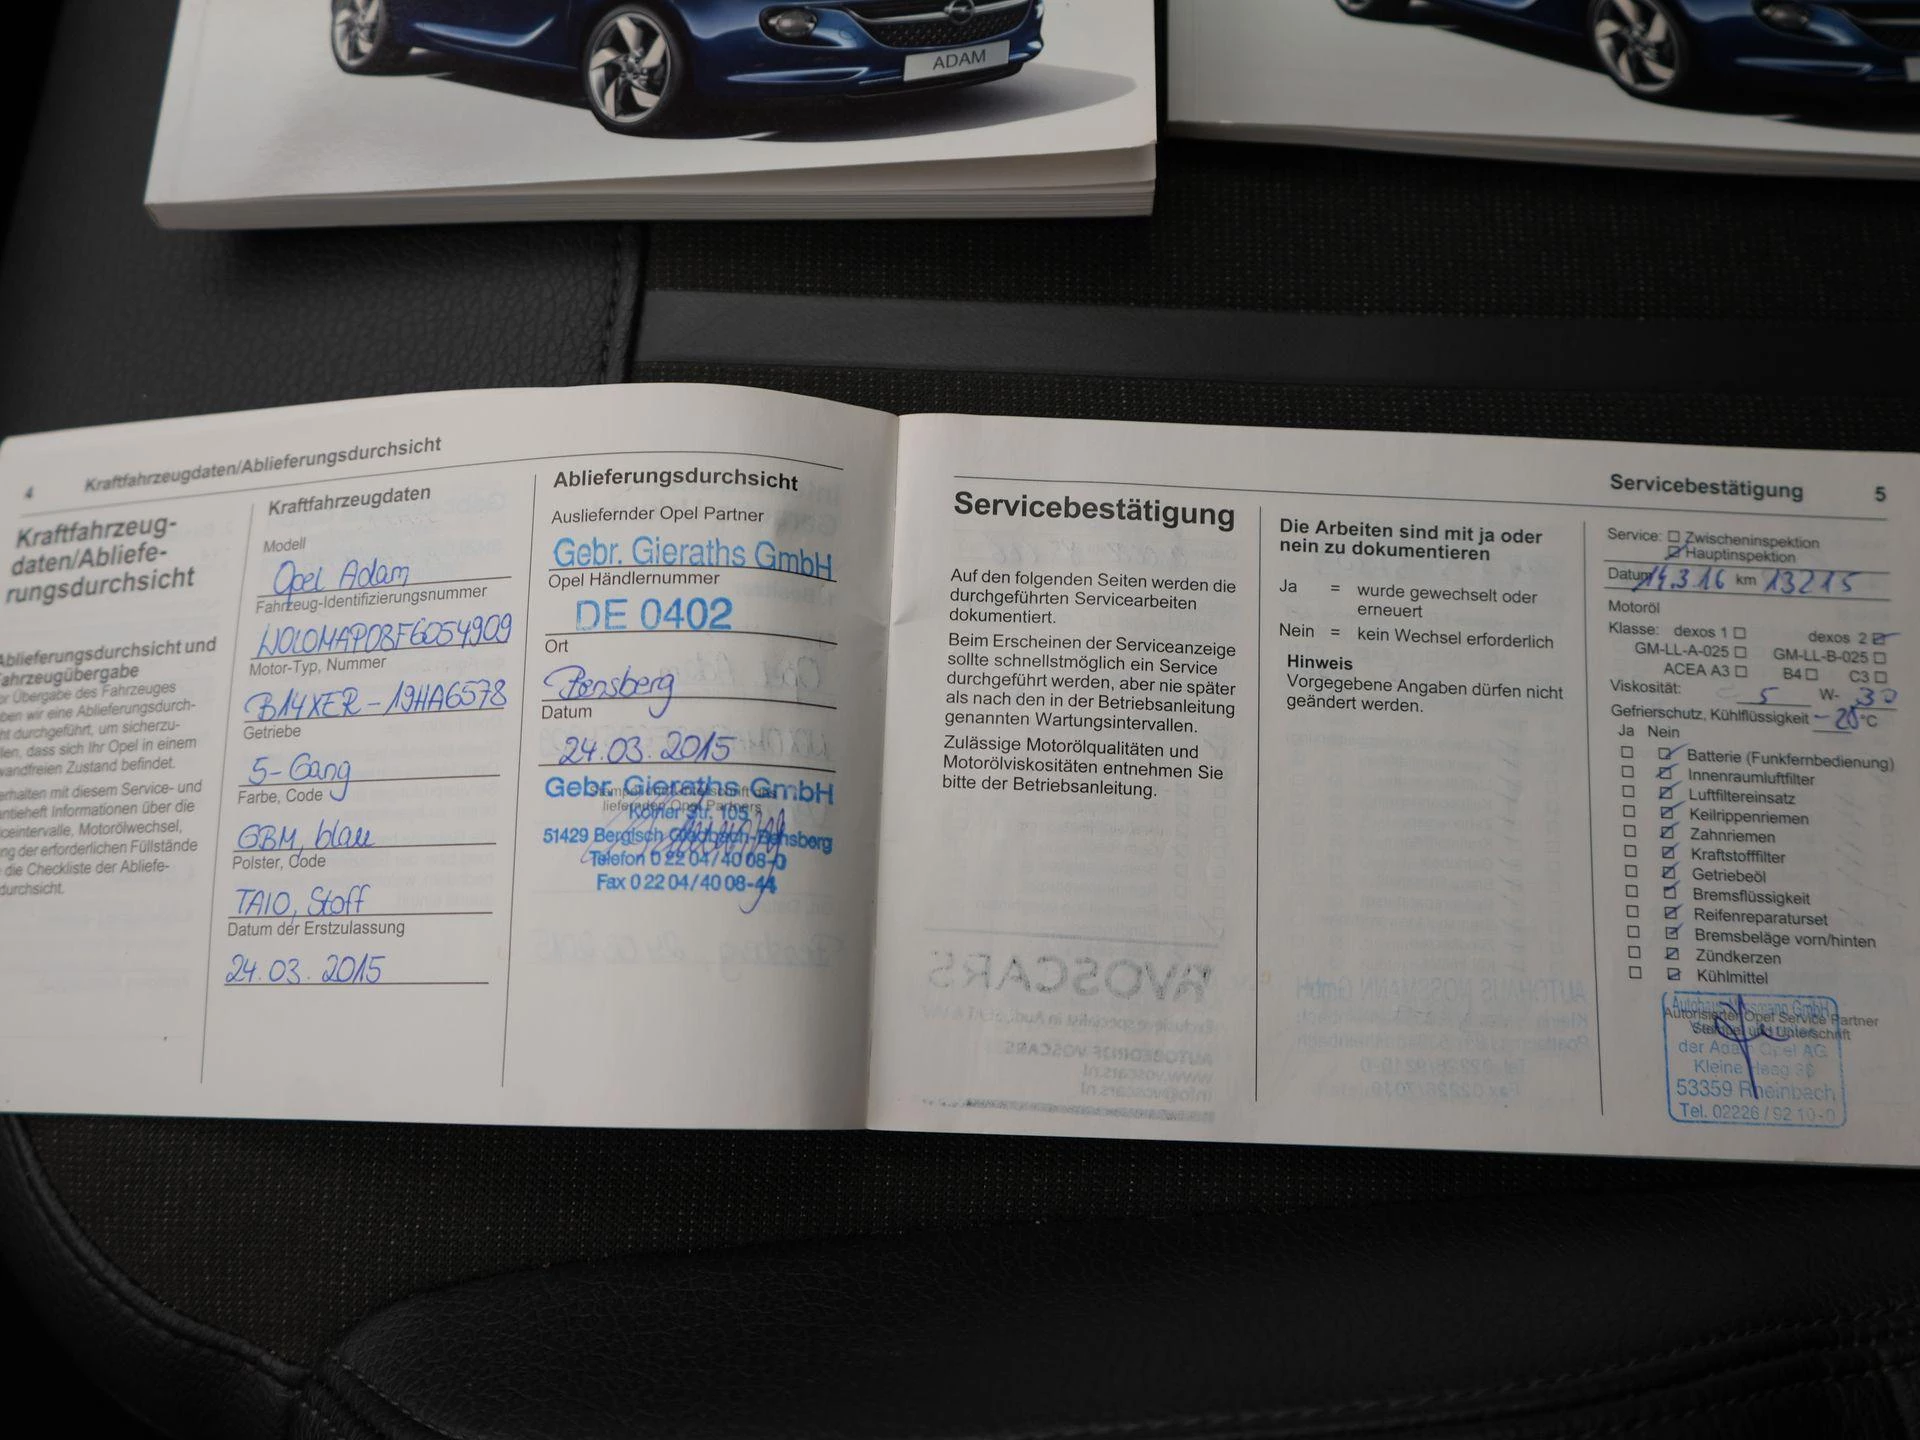 ADAM
4 Kraftfahrzeugdaten/Ablieferungsdurchsicht
Kraftfahrzeug-
daten/Abliefe-
rungsdurchsicht
Ablieferungsdurchsicht und
Fahrzeugübergabe
Übergabe des Fahrzeuges
wir eine Ablieferungsdurch-
durchgeführt, um sicherzu-
dass sich Ihr Opel in einem
Zustand befindet.
mit diesem Service- und
Informationen über die
Motorölwechsel,
der erforderlichen Füllstände
die Checkliste der Abliefe-
Kraftfahrzeugdaten
Modell
Opel Adam
Fahrzeug-Identifizierungsnummer
W0L0MAP08F6054909
Motor-Typ, Nummer
B14XER-19HA6578
Getriebe
5-Gang
Farbe, Code
GBM, blau
Polster, Code
TAIO, Stoff
Datum der Erstzulassung
24.03.2015
Ablieferungsdurchsicht
Ausliefernder Opel Partner
Gebr. Gieraths GmbH
Opel Händlernummer
DE 0402
Ort
Bensberg
Datum
24.03.2015
Gebr. Gieraths GmbH
liefernden Opel Partners
Kölner Str. 105
51429 Bergisch Gladbach-Bensberg
Telefon 0 22 04/40 08-0
Fax 0 22 04/40 08-44
Servicebestätigung 5
Servicebestätigung
Auf den folgenden Seiten werden die
durchgeführten Servicearbeiten
dokumentiert.
Beim Erscheinen der Serviceanzeige
sollte schnellstmöglich ein Service
durchgeführt werden, aber nie später
als nach den in der Betriebsanleitung
genannten Wartungsintervallen.
Zulässige Motorölqualitäten und
Motorölviskositäten entnehmen Sie
bitte der Betriebsanleitung.
Die Arbeiten sind mit ja oder
nein zu dokumentieren
Ja = wurde gewechselt oder
erneuert
Nein = kein Wechsel erforderlich
Hinweis
Vorgegebene Angaben dürfen nicht
geändert werden.
Service: ☐ Zwischeninspektion
☑ Hauptinspektion
Datum 14.3.16 km 13215
Motoröl
Klasse: dexos 1 ☐ dexos 2 ☑
GM-LL-A-025 ☐ GM-LL-B-025 ☐
ACEA A3 ☐ B4 ☐ C3 ☐
Viskosität: 5 W- 30
Gefrierschutz, Kühlflüssigkeit -28 °C
Ja Nein
☐ ☑ Batterie (Funkfernbedienung)
☐ ☑ Innenraumluftfilter
☐ ☑ Luftfiltereinsatz
☐ ☑ Keilrippenriemen
☐ ☑ Zahnriemen
☐ ☑ Kraftstofffilter
☐ ☑ Getriebeöl
☐ ☑ Bremsflüssigkeit
☐ ☑ Reifenreparaturset
☐ ☑ Bremsbeläge vorn/hinten
☐ ☑ Zündkerzen
☐ ☑ Kühlmittel
Autohaus Nossmann GmbH
Autorisierter Opel Service Partner
Stempel und Unterschrift
der Adam Opel AG
Kleine Heeg 36
53359 Rheinbach
Tel. 02226/92 10-0